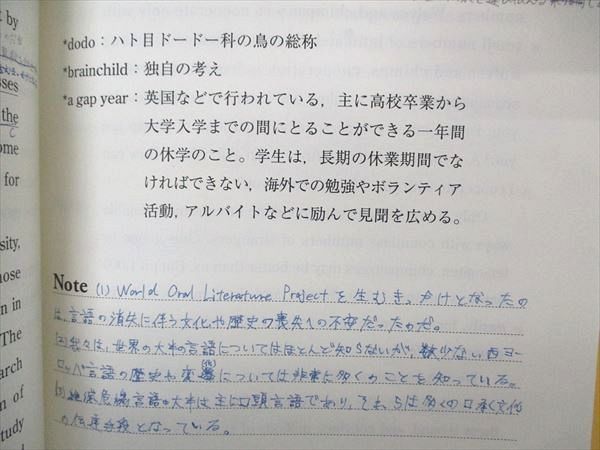 t by
sses
the
C
ome
for
sity,
hose
n in
The
arch
n of
tudy
*dodo：ハト目ドードー科の鳥の総称
*brainchild：独自の考え
*a gap year：英国などで行われている，主に高校卒業から
大学入学までの間にとることができる一年間
の休学のこと。学生は，長期の休業期間でな
ければできない，海外での勉強やボランティア
活動，アルバイトなどに励んで見聞を広める。
Note (1) World Oral Literature Project を生むきっかけとなったの
は、言語の消失に伴う文化や歴史の喪失への不安だったのだ。
(2)我々は、世界の大半の言語についてはほとんど知らないが、数少ない西ヨー
ロッパ言語の歴史や変遷については非常に多くのことを知っている。
(3)絶滅危惧言語の大半は主に口頭言語であり、それらは多くの口承文化
の伝達手段となっている。